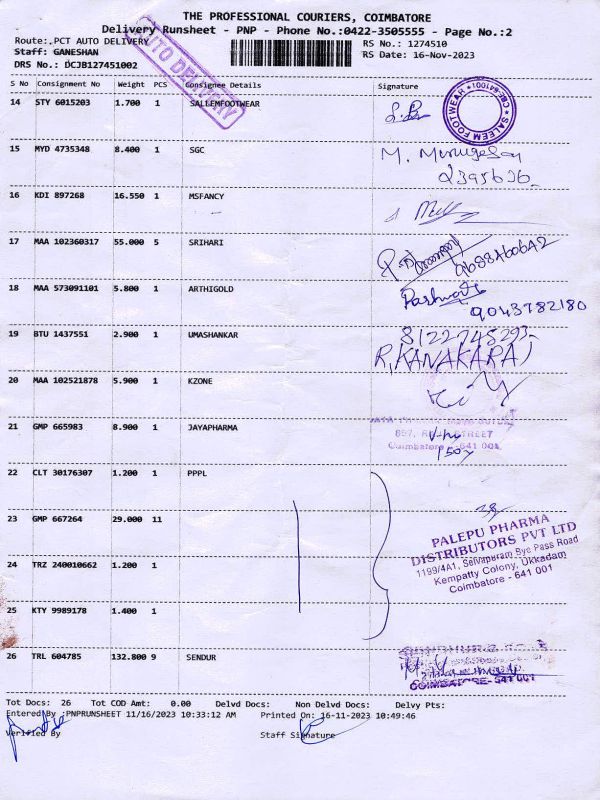 THE PROFESSIONAL COURIERS, COIMBATORE
Delivery Runsheet - PNP - Phone No.:0422-3505555 - Page No.:2
Route:.PCT AUTO DELIVERY RS No.: 1274510
Staff: GANESHAN RS Date: 16-Nov-2023
DRS No.: DCJB127451002
AUTO DELIVERY
S No Consignment No Weight PCS Consignee Details Signature
14 STY 6015203 1.700 1 SALLEMFOOTWEAR
SALEEM FOOTWEAR * CBE-641001 *
15 MYD 4735348 8.400 1 SGC M. Murugesan
2395636
16 KDI 897268 16.550 1 MSFANCY
17 MAA 102360317 55.000 5 SRIHARI
9688460642
18 MAA 573091101 5.800 1 ARTHIGOLD
9043782180
19 BTU 1437551 2.900 1 UMASHANKAR 8122748293
R,KANAKARAJ
20 MAA 102521878 5.900 1 KZONE
21 GMP 665983 8.900 1 JAYAPHARMA
STREET
Coimbatore - 641 001
22 CLT 30176307 1.200 1 PPPL
23 GMP 667264 29.000 11
PALEPU PHARMA
DISTRIBUTORS PVT LTD
1199/4A1, Selvapuram Bye Pass Road
Kempatty Colony, Ukkadam
Coimbatore - 641 001
24 TRZ 240010662 1.200 1
25 KTY 9989178 1.400 1
26 TRL 604785 132.800 9 SENDUR
COIMBATORE- 641 001
Tot Docs: 26 Tot COD Amt: 0.00 Delvd Docs: Non Delvd Docs: Delvy Pts:
Entered By :PNPRUNSHEET 11/16/2023 10:33:12 AM Printed On: 16-11-2023 10:49:46
Verified By Staff Signature